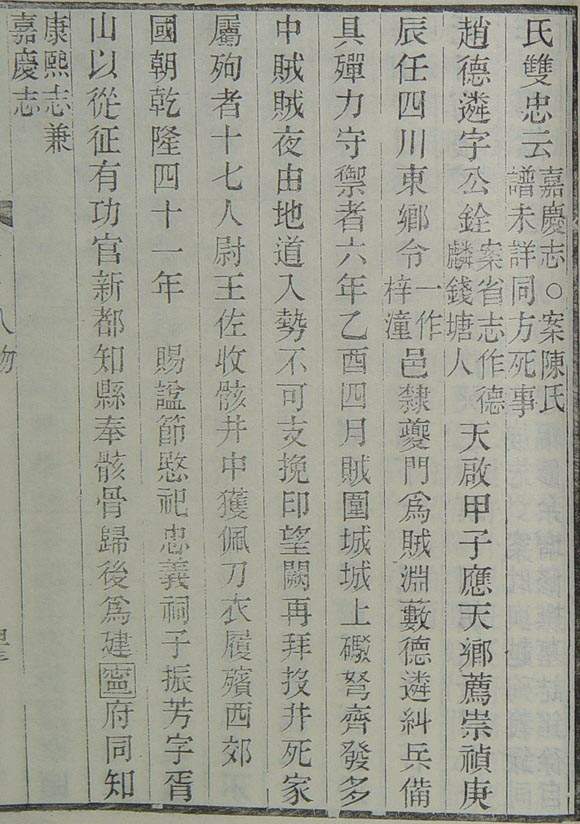 氏雙忠云嘉慶志○案陳氏
譜未詳同方死事
趙德遴字公銓案省志作德
麟錢塘人天啟甲子應天鄉薦崇禎庚
辰任四川東鄉令一作
梓潼邑隸夔門為賊淵藪德遴糾兵備
具殫力守禦者六年乙酉四月賊圍城城上礟弩齊發多
中賊賊夜由地道入勢不可支挽印望闕再拜投井死家
屬殉者十七人尉王佐收骸井中獲佩刀衣履殯西郊
國朝乾隆四十一年 賜諡節愍祀忠義祠子振芳字胥
山以從征有功官新都知縣奉骸骨歸後為建甯府同知
康熙志兼
嘉慶志
人物